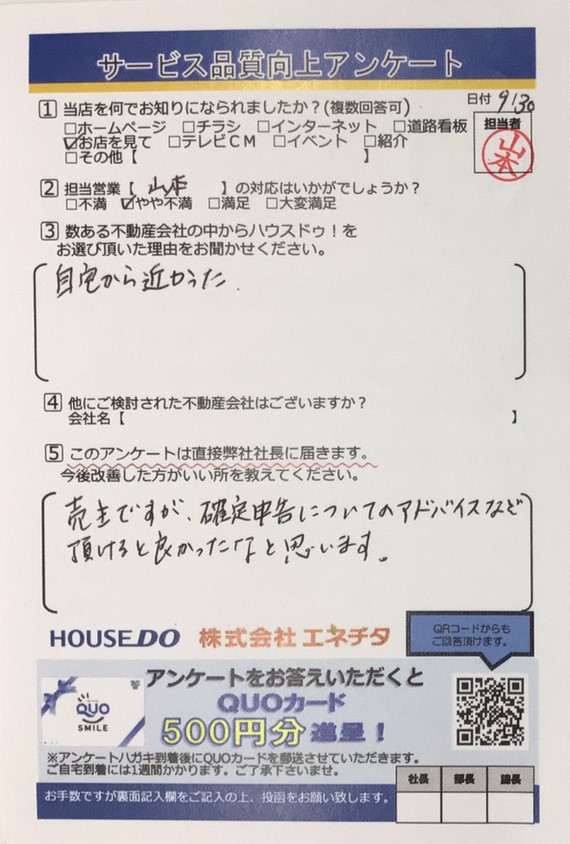 サービス品質向上アンケート
日付 9/30
1 当店を何でお知りになられましたか？(複数回答可)
□ホームページ □チラシ □インターネット □道路看板
☑お店を見て □テレビCM □イベント □紹介
□その他【 】
担当者
山本
2 担当営業【 山本 】の対応はいかがでしょうか？
□不満 ☑やや不満 □満足 □大変満足
3 数ある不動産会社の中からハウスドゥ！を
お選び頂いた理由をお聞かせください。
自宅から近かった.
4 他にご検討された不動産会社はございますか？
会社名【 】
5 このアンケートは直接弊社社長に届きます。
今後改善した方がいい所を教えてください。
売主ですが、確定申告についてのアドバイスなど
頂けると良かったなと思います。
HOUSE DO 株式会社 エネチタ
QRコードからも
ご回答頂けます。
アンケートをお答えいただくと
QUOカード
500円分 進呈！
QUO
SMILE
※アンケートハガキ到着後にQUOカードを郵送させていただきます。
ご自宅到着には1週間かかります。ご了承下さいませ。
社長 部長 課長
お手数ですが裏面記入欄をご記入の上、投函をお願い致します。